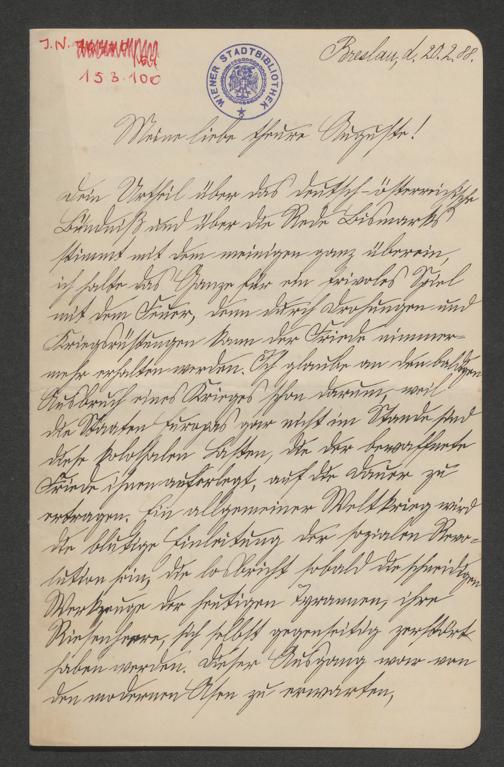 J. N.
153.100
WIENER STADTBIBLIOTHEK
Breslau, d. 20.2.88.
Meine liebe theure Auguste!
Dein Urtheil über das deutsch-österreichische
Bündniß und über die Rede Bismarks
stimmt mit dem meinigen ganz überein,
ich halte das Ganze für ein frivoles Spiel
mit dem Feuer, denn durch Drohungen und
Kriegsrüstungen kann der Friede nimmer=
mehr erhalten werden. Ich glaube an den baldigen
Ausbruch eines Krieges schon darum, weil
die Staaten Europas gar nicht im Stande sind
diese kolossalen Lasten, die der bewaffnete
Friede ihnen auferlegt, auf die Dauer zu
ertragen. Ein allgemeiner Weltkrieg wird
die blutige Einleitung der sozialen Revo=
lution sein, die losbricht sobald die schneidigen
Werkzeuge der heutigen Tyrannen, ihre
Riesenheere, sich selbst gegenseitig zerstört
haben werden. Dieser Ausgang war von
den modernen zu erwarten,